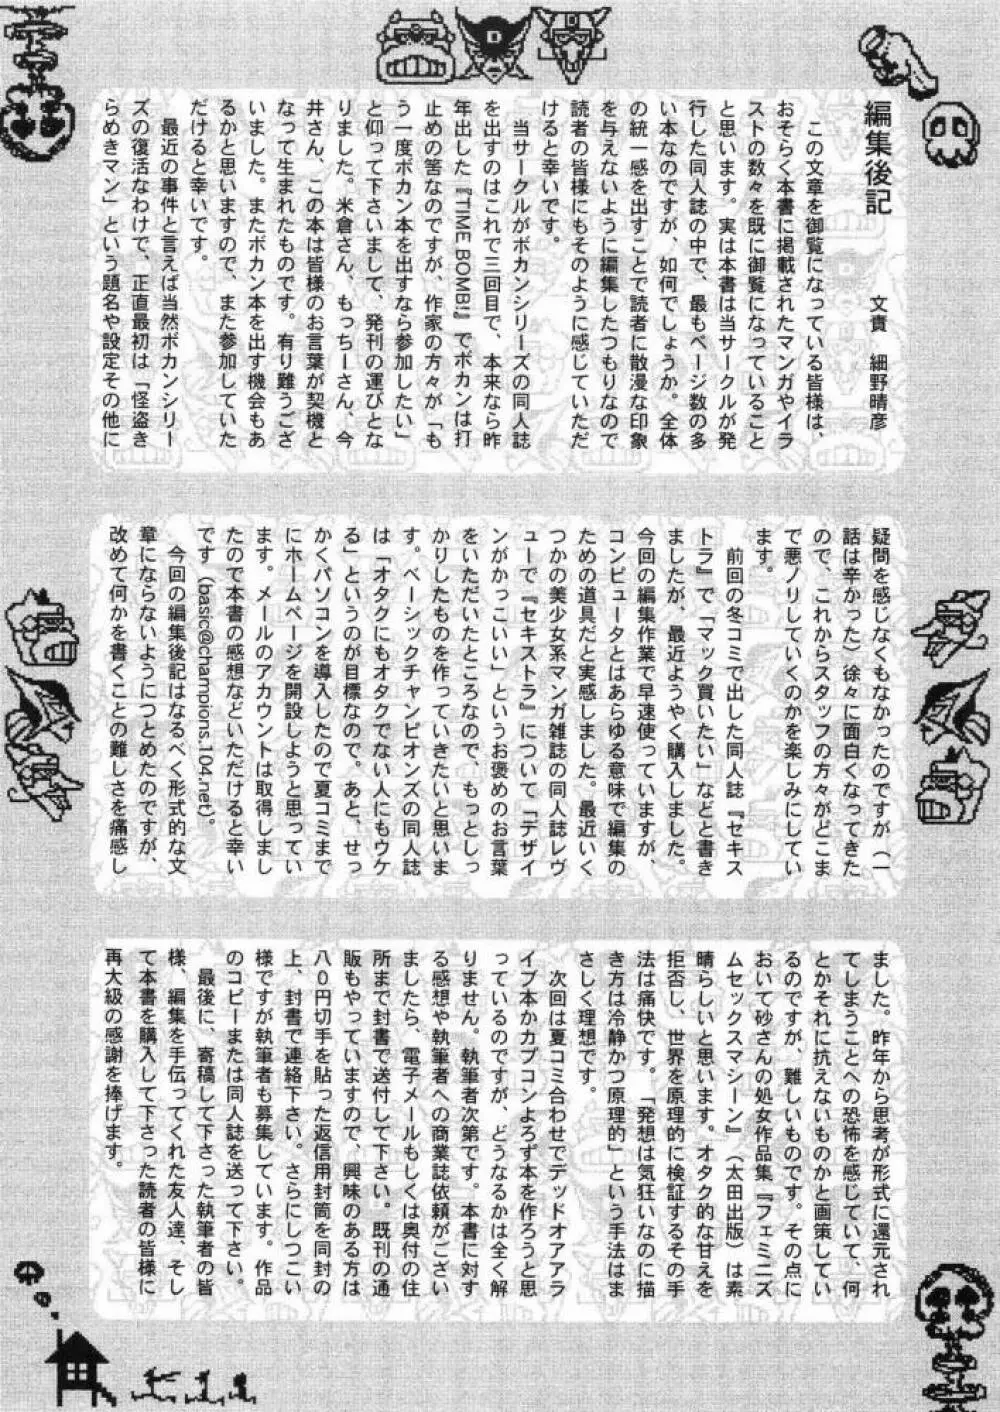 編集後記
文責　細野晴彦
　この文章を御覧になっている皆様は、
おそらく本書に掲載されたマンガやイラ
ストの数々を既に御覧になっていること
と思います。実は本書は当サークルが発
行した同人誌の中で、最もページ数の多
い本なのですが、如何でしょうか。全体
の統一感を出すことで読者に散漫な印象
を与えないように編集したつもりなので
読者の皆様にもそのように感じていただ
けると幸いです。
　当サークルがボカンシリーズの同人誌
を出すのはこれで三回目で、本来なら昨
年出した『TIME BOMB!!』でボカンは打
止めの筈なのですが、作家の方々が「も
う一度ボカン本を出すなら参加したい」
と仰って下さいまして、発刊の運びとな
りました。米倉さん、もっちーさん、今
井さん、この本は皆様のお言葉が契機と
なって生まれたものです。有り難うござ
いました。またボカン本を出す機会もあ
るかと思いますので、また参加していた
だけると幸いです。
　最近の事件と言えば当然ボカンシリー
ズの復活なわけで、正直最初は「怪盗き
らめきマン」という題名や設定その他に
疑問を感じなくもなかったのですが（一
話は辛かった）徐々に面白くなってきた
ので、これからスタッフの方々がどこま
で悪ノリしていくのかを楽しみにしてい
ます。
　前回の冬コミで出した同人誌『セキス
トラ』で「マック買いたい」などと書き
ましたが、最近ようやく購入しました。
今回の編集作業で早速使っていますが、
コンピュータとはあらゆる意味で編集の
ための道具だと実感しました。最近いく
つかの美少女系マンガ雑誌の同人誌レヴ
ューで『セキストラ』について「デザイ
ンがかっこいい」というお褒めのお言葉
をいただいたところなので、もっとしっ
かりしたものを作っていきたいと思いま
す。ベーシックチャンピオンズの同人誌
は「オタクにもオタクでない人にもウケ
る」というのが目標なので。あと、せっ
かくパソコンを導入したので夏コミまで
にホームページを開設しようと思ってい
ます。メールのアカウントは取得しまし
たので本書の感想などいただけると幸い
です（basic@champions.104.net）。
　今回の編集後記はなるべく形式的な文
章にならないようにつとめたのですが、
改めて何かを書くことの難しさを痛感し
ました。昨年から思考が形式に還元され
てしまうことへの恐怖を感じていて、何
とかそれに抗えないものかと画策してい
るのですが、難しいものです。その点に
おいて砂さんの処女作品集『フェミニズ
ムセックスマシーン』（太田出版）は素
晴らしいと思います。オタク的な甘えを
拒否し、世界を原理的に検証するその手
法は痛快です。「発想は気狂いなのに描
き方は冷静かつ原理的」という手法はま
さしく理想です。
　次回は夏コミ合わせでデッドオアアラ
イブ本かカプコンよろず本を作ろうと思
っているのですが、どうなるかは全く解
りません。執筆者次第です。本書に対す
る感想や執筆者への商業誌依頼がござい
ましたら、電子メールもしくは奥付の住
所まで封書で送付して下さい。既刊の通
販もやっていますので、興味のある方は
八０円切手を貼った返信用封筒を同封の
上、封書で連絡下さい。さらにしつこい
様ですが執筆者も募集しています。作品
のコピーまたは同人誌を送って下さい。
　最後に、寄稿して下さった執筆者の皆
様、編集を手伝ってくれた友人達、そし
て本書を購入して下さった読者の皆様に
再大級の感謝を捧げます。